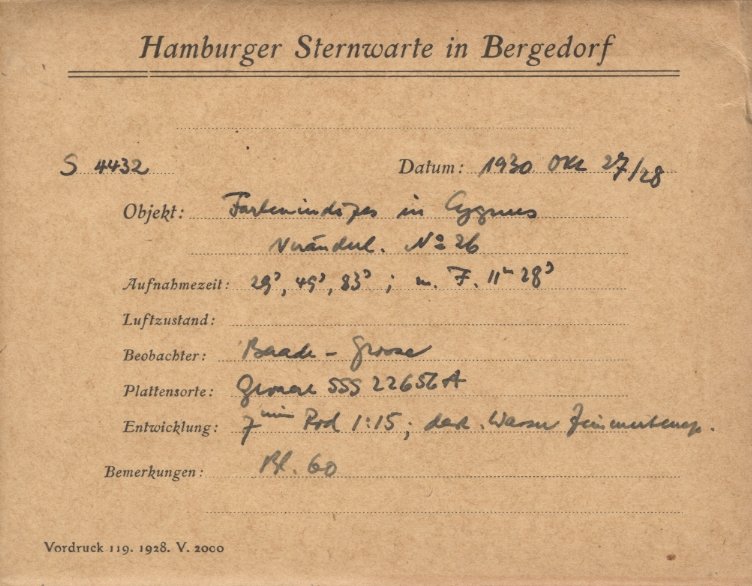 Hamburger Sternwarte in Bergedorf
S 4432 Datum: 1930 Okt 27/28
Objekt: Farbenindizes in Cygnus
Veränderl. No 26
Aufnahmezeit: 29ˢ, 49ˢ, 83ˢ; m. F. 11ᵐ 28ˢ
Luftzustand:
Beobachter: Baade -
Plattensorte: SSS 22656A
Entwicklung: 7 min Rod 1:15; dest. Wasser Zimmertemp.
Bemerkungen: Bl. 60
Vordruck 119. 1928. V. 2000